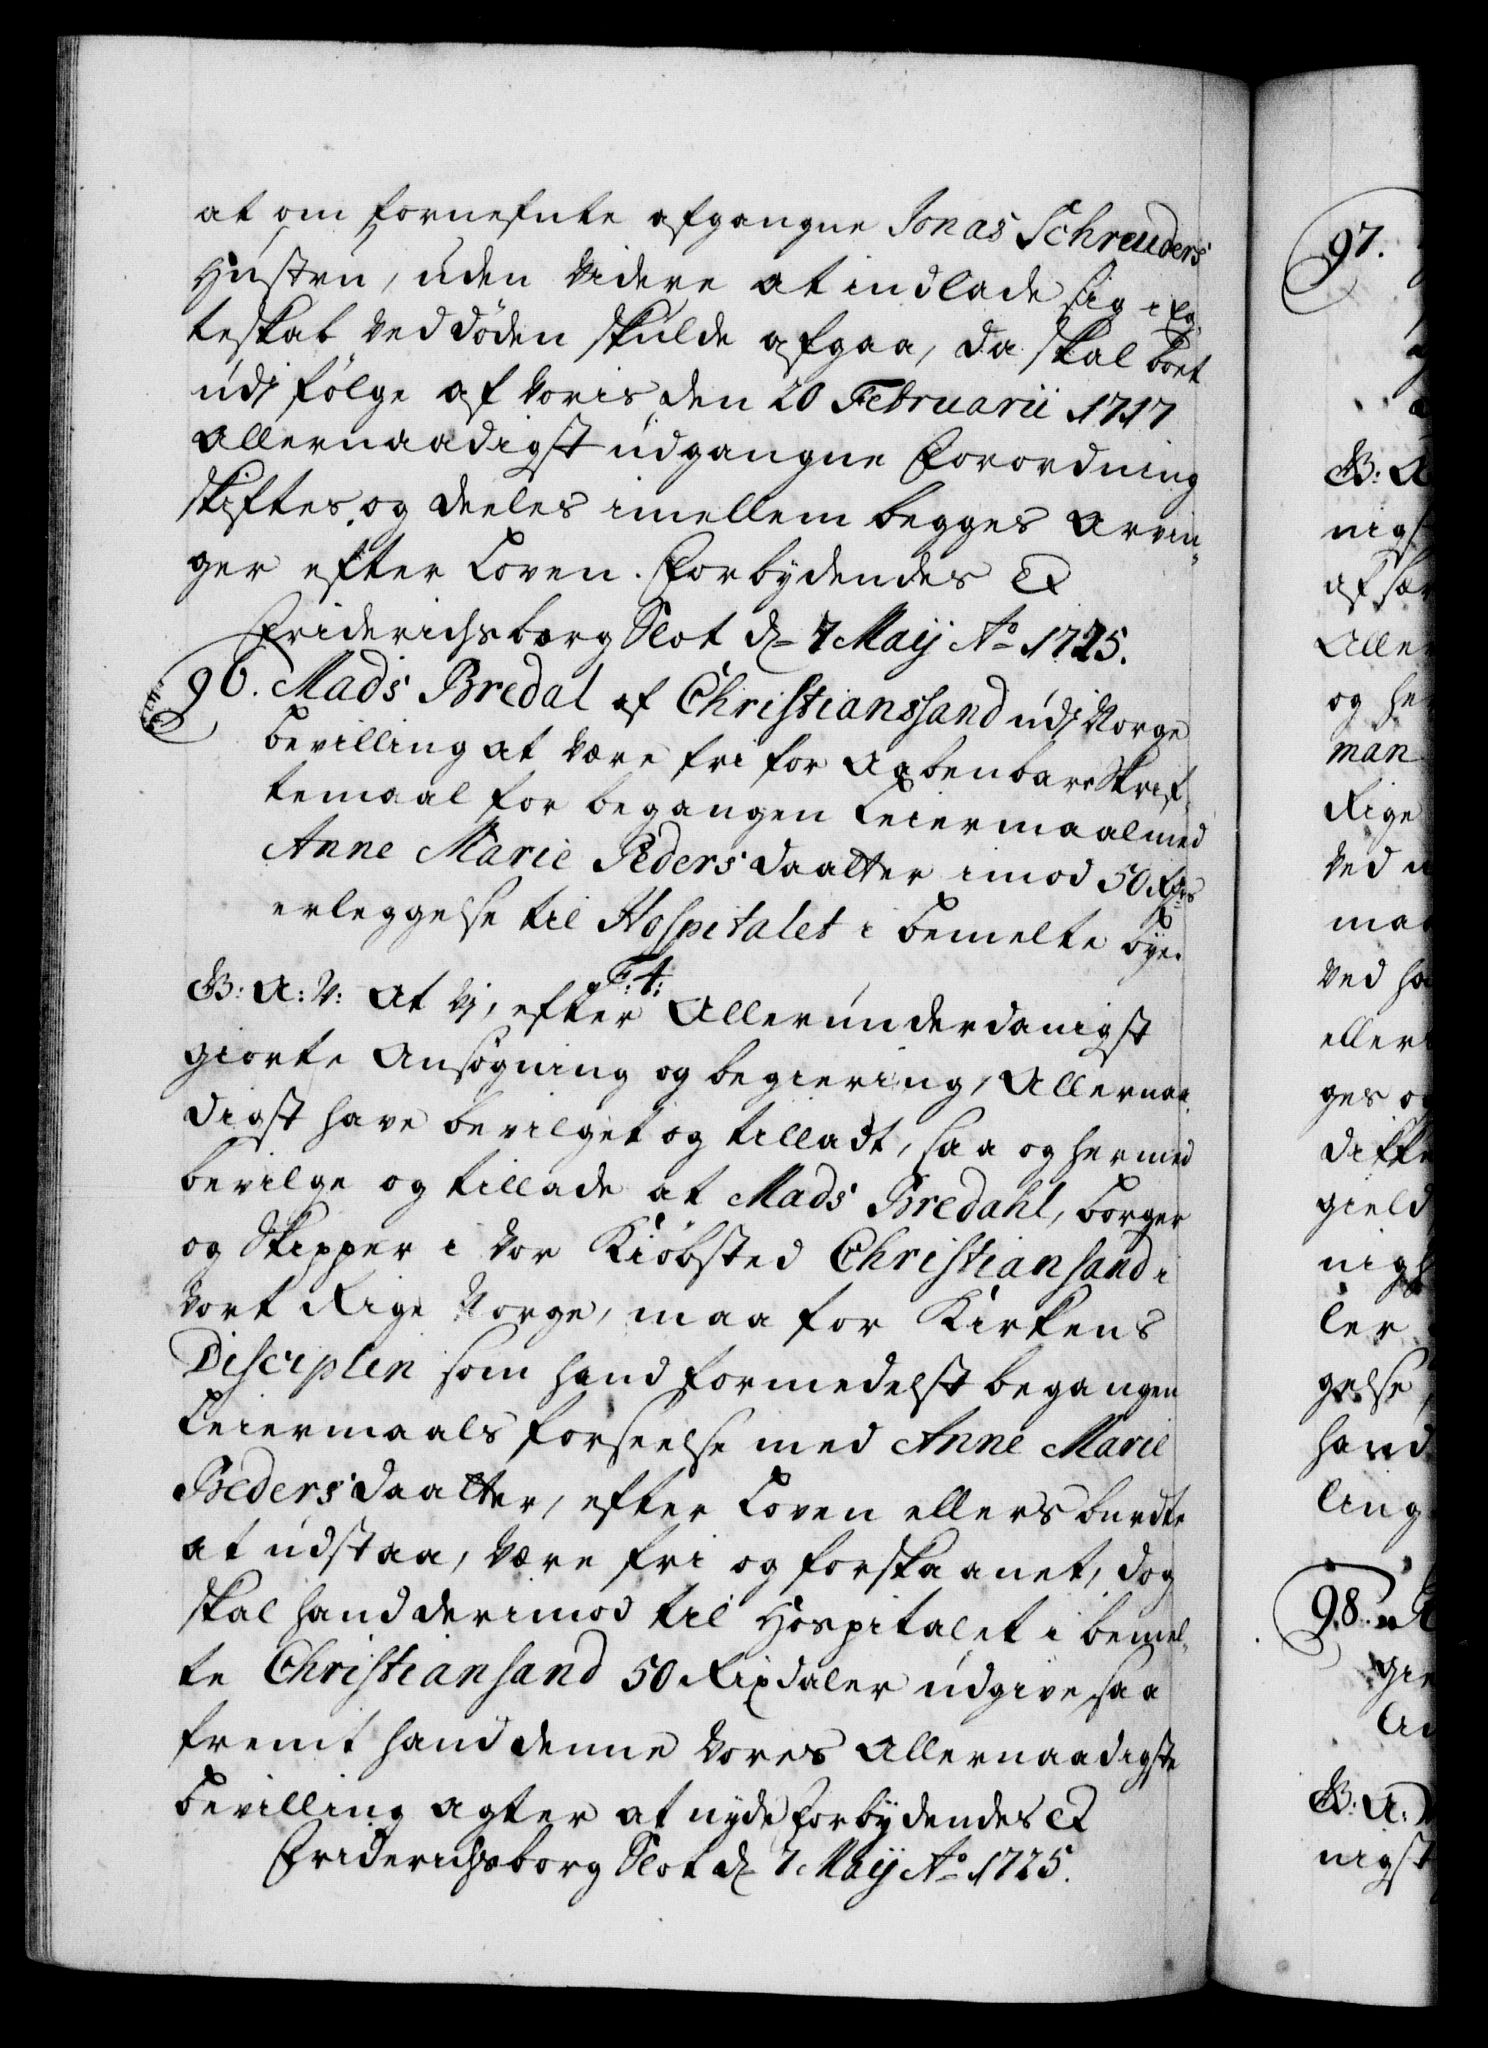 at om fornefnte afgangne Jonas Schreuders
Hustru, uden videre at indlade sig i Eg¬
teskab ved døden skulde afgaa, da skal boet
udj følge af Voris den 20 Februarii 1717
Allernaadigst udgangne Forordning
skiftes og deeles imellem begges Arvin¬
ger efter Loven. Forbydendes &c
Friderichsborg Slot d. 7 Maij Ao 1725.
96. Mads Bredal af Christianssand udj Norge
Bevilling at være fri for Aabenbare Skrif¬
temaal for begangen Leiermaal med
Anne Marie Pedersdaatter imod 50 Rdrs
erleggelse til Hospitalet i bemelte bye.
F: 4:
G: A: V: At Vj, efter Allerunderdanigst
giorte Ansøgning og begiering, Allernaa¬
digst have bevilget og tilladt, saa og hermed
bevilge og tillade at Mads Bredahl, borger
og Skipper i vor Kiøbsted Christiansand i
vort Rige Norge, maa for Kirkens
Disciplin som hand formedelst begangen
Leiermaals forseelse med Anne Marie
Pedersdaatter, efter Loven ellers burdte
at udstaa, være fri og forskaanet, dog
skal hand derimod til Hospitalet i bemel¬
te Christiansand 50 Rixdaler udgive, saa
fremt hand denne Vores Allernaadigste
Bevilling agter at nyde Forbydendes &c
Friderichsborg Slot d. 7 Maij Ao 1725.
97.
G: A
nigst
af
Aller
og he
man
Rige
ved
maa
ved ha
eller
ges og
gield
ler
gelse
hand
ling
98.
gie
G: A: V
nigst